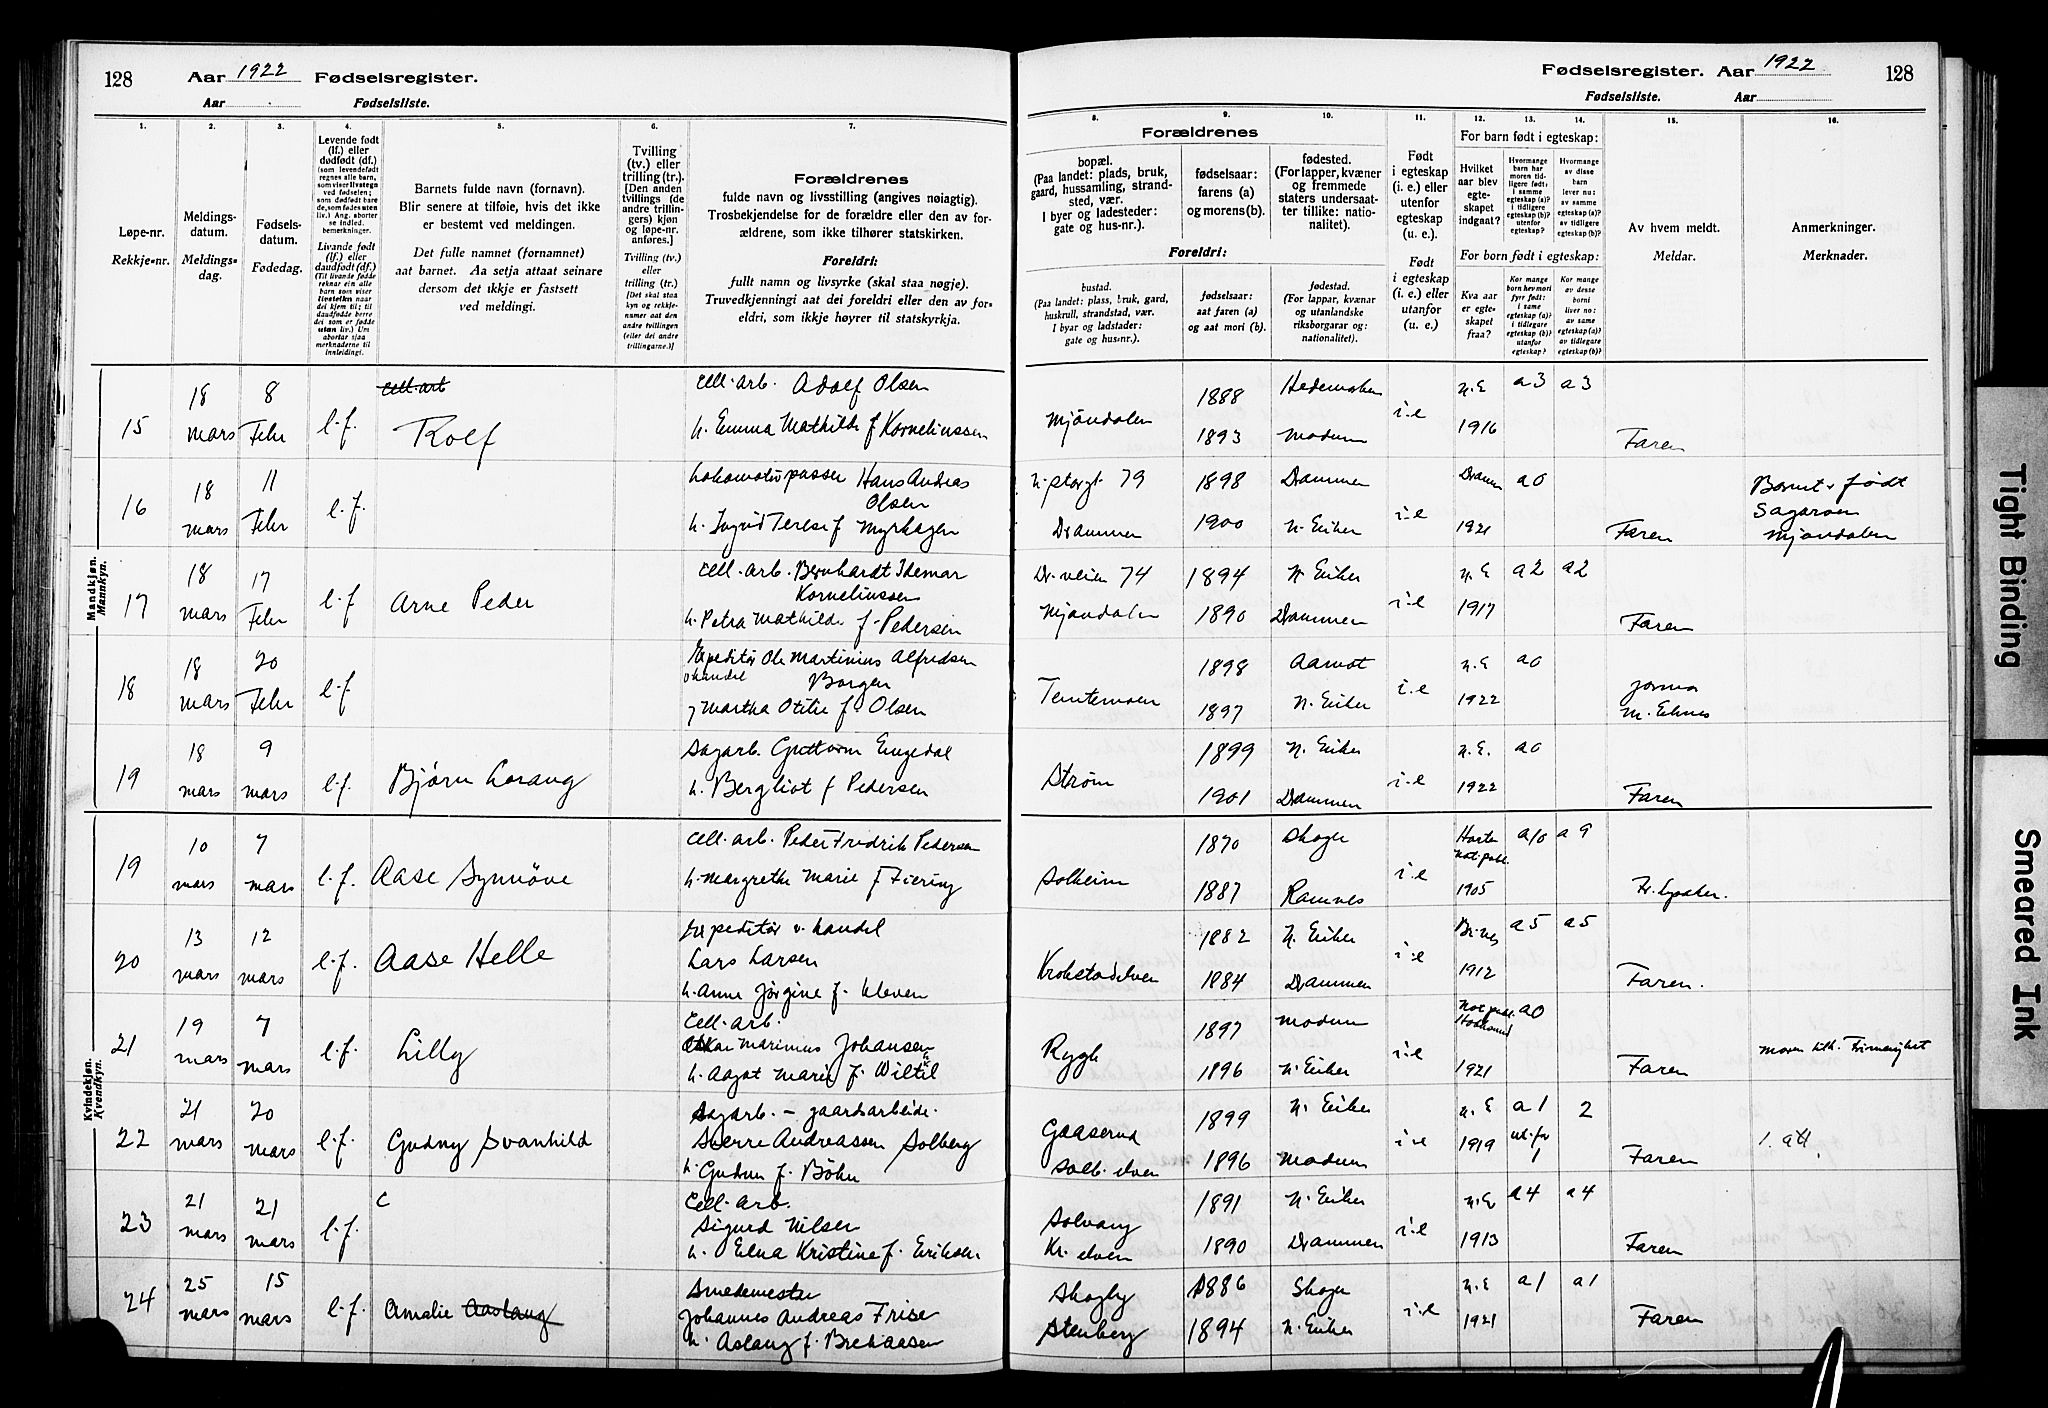 128 Aar 1922 Fødselsregister.
Aar Fødselsliste.
Fødselsregister. Aar 1922 128
Fødselsliste. Aar
1. 2. 3. 4. 5. 6. 7. 8. 9. 10. 11. 12. 13. 14. 15. 16.
Løpe-nr.
Rekkje-nr.
Meldings-
datum.
Meldings-
dag.
Fødsels-
datum.
Fødedag.
Levende født
(lf.) eller
dødfødt (df.)
Livande født
(lf.) eller
daudfødt (df.)
Barnets fulde navn (fornavn).
Blir senere at tilføie, hvis det ikke
er bestemt ved meldingen.
Det fulle namnet (fornamnet)
aat barnet. Aa setja attaat seinare
dersom det ikkje er fastsett
ved meldingi.
Tvilling
(tv.) eller
trilling (tr.).
[Den anden
tvillings (de
andre trillin-
gers) kjøn
og løpe-nr.
anføres.]
Tvilling (tv.)
eller
trilling (tr.)
[Det skal staa
kyn og rekkje-
numer aat den
andre tvillingen
(eller dei andre
trillingarne.)]
Forældrenes
fulde navn og livsstilling (angives nøiagtig).
Trosbekjendelse for de forældre eller den av for-
ældrene, som ikke tilhører statskirken.
Foreldri:
fullt namn og livsyrke (skal staa nøgje).
Truvedkjenningi aat dei foreldri eller den av for-
eldri, som ikkje høyrer til statskyrkja.
Forældrenes
bopæl.
(Paa landet: plads, bruk,
gaard, hussamling, strand-
sted, vær.
I byer og ladesteder:
gate og hus-nr.).
fødselsaar:
farens (a)
og morens (b).
fødested.
(For lapper, kvæner
og fremmede
staters undersaat-
ter tillike: natio-
nalitet).
Foreldri:
bustad.
(Paa landet: plass, bruk, gard,
huskrull, strandstad, vær.
I byar og ladstader:
gate og hus-nr.).
fødselsaar:
aat faren (a)
og aat mori (b).
fødestad.
(For lappar, kvænar
og utanlandske
riksborgarar og:
nationalitet).
Født
i egteskap
(i. e.) eller
utenfor
egteskap
(u. e.).
Født
i egteskap
(i. e.) eller
utanfor
(u. e.)
For barn født i egteskap:
Hvilket
aar blev
egte-
skapet
indgaat?
For born født i egteskap:
Kva aar
er egte-
skapet
fraa?
Av hvem meldt.
Meldar.
Anmerkninger.
Merknader.
Mandkjøn.
Mannkyn.
15 18 mars 8 Febr l.f. Rolf
Cell.arb. Adolf Olsen
h. Emma Mathilde f Korneliussen
Mjøndalen 1888 1893 Hedemarken Modum i.e N.E 1916 a 3 a 3 Faren
16 18 mars 11 Febr l.f.
Lokomotivpasser Hans Andreas
Olsen
h. Ingrid Terese f Myrhagen
N. Storgt. 79
Drammen 1898 1900 Drammen N. Eiker i.e Dramm 1921 a 0 Faren
Barnet født
Sagaroen
Mjøndalen
17 18 mars 17 Febr l.f Arne Peder
Cell.arb. Bernhardt Idemar
Korneliussen
h. Petra Mathilde f. Pedersen
Dr.veien 74
Mjøndalen 1894 1890 N Eiker Drammen i.e N.E 1917 a 2 a 2 Faren
18 18 mars 20 Febr l.f
Expeditør Ole Martinius Alfredsen
v handel Borgen
h Martha Otilie f. Olsen
Temtemoen 1898 1897 Aamot N. Eiker i.e N.E 1922 a 0
19 18 mars 9 mars l.f. Bjørn Lorang
Sagarb. Guttorm Engedal
h. Bergliot f Pedersen
Strøm 1899 1901 N. Eiker Drammen i.e N.E. 1922 a 0 Faren
Kvindekjøn.
Kvendkyn.
19 10 mars 7 mars l.f. Aase Synnøve
Cell.arb. Peder Fredrik Pedersen
h. Margrethe Marie f Fiering
Solheim 1870 1887 Skoger Ramnes i.e 1905 a 10 a 9
20 13 mars 12 mars l.f. Aase Helle
Expeditør v. handel
Lars Larsen
h. Anne Jørgine f. Kleven
Krokstadelven 1882 1884 N. Eiker Drammen i.e 1912 a 5 a 5 Faren.
21 19 mars 7 mars l.f. Lilly
Cell.arb.
Oskar Marinius Johansen
h. Aagot Marie f. Wiltil
Rygh 1897 1896 Modum N. Eiker i.e 1921 a0 Faren
22 21 mars 20 mars l.f. Gudny Svanhild
Sagarb. – gaardsarbeide.
Sverre Andreassen Solberg
h. Gudrun f. Bøhn
Gaaserud
Solb. elven 1899 1896 N. Eiker Modum i.e N.E 1919 a 1 2 Faren 1. att.
23 21 mars 21 mars l.f. C
Cell.arb.
Sigurd Nilsen
h. Edna Kristine f. Eriksen
Solvang
Kr. elven 1891 1890 N. Eiker Drammen i.e N.E 1913 a 4 a 4 Faren
24 25 mars 15 mars l.f. Amalie Aaslaug
Smedemester
Johannes Andreas Frise
h. Aslaug f. Brekaasen
Skogly
Stenberg 1886 1894 Skoger N. Eiker i.e N.E 1921 a 1 a 1 Faren
Tight Binding
Smeared Ink